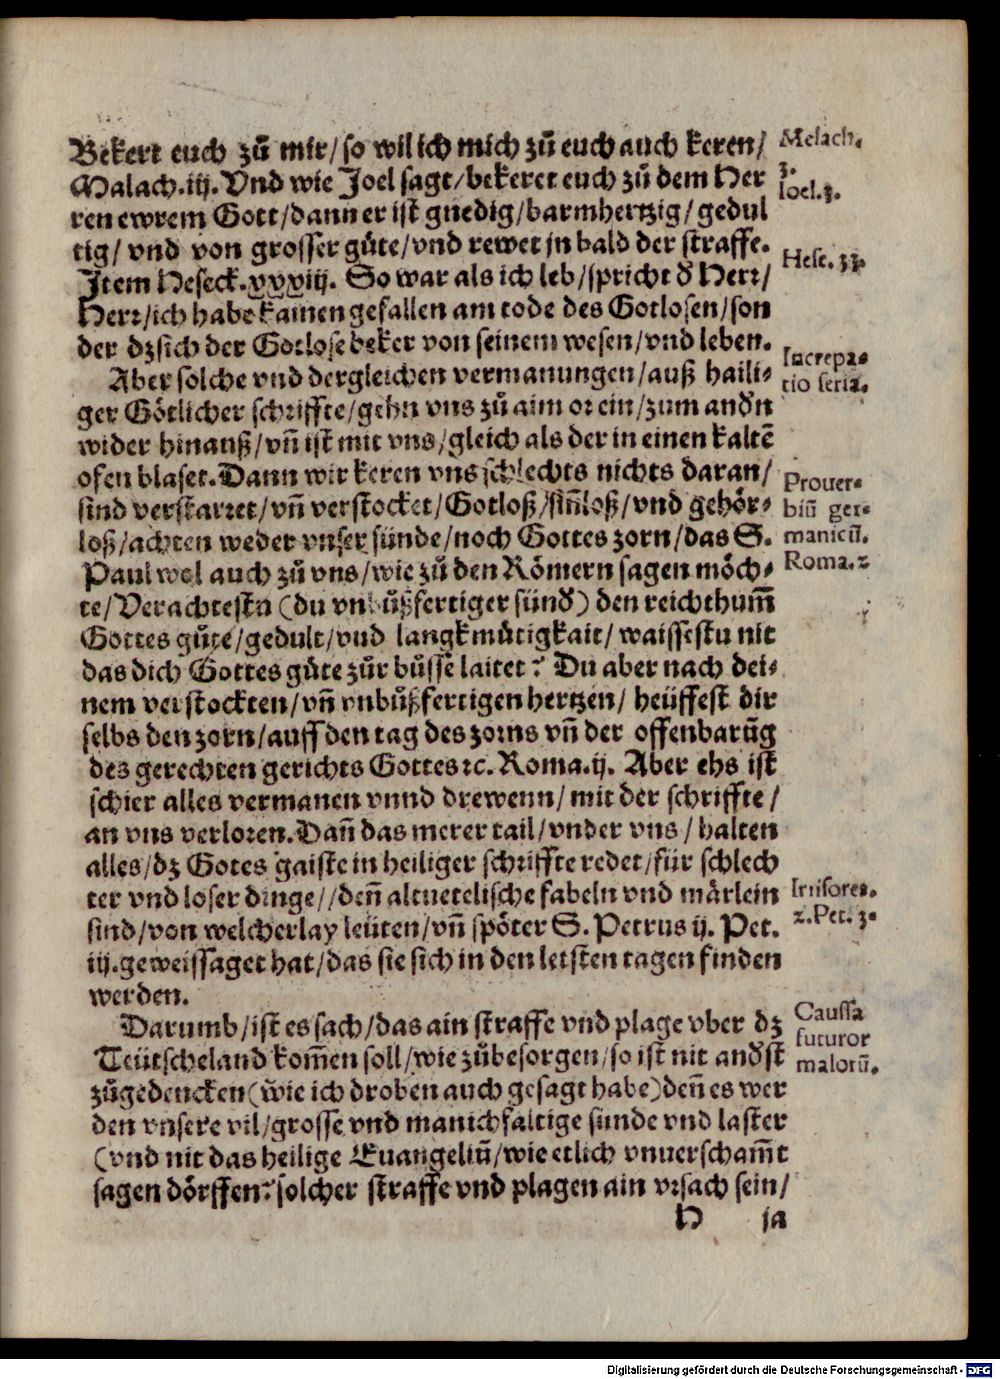 Bekert euch zů mir/so wil ich mich zů euch auch keren/
Malach.iij. Vnd wie Joel sagt/bekeret euch zů dem Her
ren ewrem Gott/dann er ist gnedig/barmhertzig/gedul
tig/ vnd von grosser güte/vnd rewet jn bald der straffe.
Item Heseck.xxxiij. So war als ich leb/spricht ð Herr/
Herr/ich habe kainen gefallen am tode des Gotlosen/son
der dz sich der Gotlose beker von seinem wesen/vnd leben.
Aber solche vnd dergleichen vermanungen/auß haili⸗
ger Götlicher schriffte/gehn vns zů aim or ein/zum andn̄
wider hinauß/vn̄ ist mit vns/gleich als der in einen kaltē
ofen blaset. Dann wir keren vns schlechts nichts daran/
sind verstarret/vn̄ verstocket/Gotloß/sin̄loß/vnd gehör⸗
loß/achten weder vnser sünde/noch Gottes zorn/das S.
Paul wol auch zů vns/wie zů den Römern sagen möch⸗
te/Verachtestu (du vnbůßfertiger sünð) den reichthum̄
Gottes güte/gedult/vnd langkmütigkait/waissestu nit
das dich Gottes güte zůr bůsse laitet? Du aber nach dei⸗
nem verstockten/vn̄ vnbůßfertigen hertzen/ heüffest dir
selbs den zorn/auff den tag des zorns vn̄ der offenbarūg
des gerechten gerichts Gottes ꝛc. Roma.ij. Aber ehs ist
schier alles vermanen vnnd drewenn/mit der schriffte/
an vns verloren. Dan̄ das merer tail/vnder vns/ halten
alles/dz Gotes gaiste in heiliger schriffte redet/für schlech
ter vnd loser dinge//den̄ altuetelische fabeln vnd märlein
sind/von welcherlay leüten/vn̄ spöter S. Petrus ij. Pet.
iij. geweissaget hat/das sie sich in den letsten tagen finden
werden.
Darumb/ist es sach/das ain straffe vnd plage vber dz
Teütscheland kom̄en soll/wie zůbesorgen/so ist nit andst
zůgedencken(wie ich droben auch gesagt habe)den̄ es wer
den vnsere vil/grosse vnd manichfaltige sünde vnd laster
(vnd nit das heilige Euangeliū/wie etlich vnuerscham̄t
sagen dörffen? solcher straffe vnd plagen ain vrsach sein/
H ja
Melach.
3.
Ioel.3.
Hese. 33.
Increpa⸗
tio seria.
Prouer⸗
biū ger⸗
manicū.
Roma.2
Irrisores.
2.Pet. 3.
Caussa
futuror
malorū.
Digitalisierung gefördert durch die Deutsche Forschungsgemeinschaft - DFG